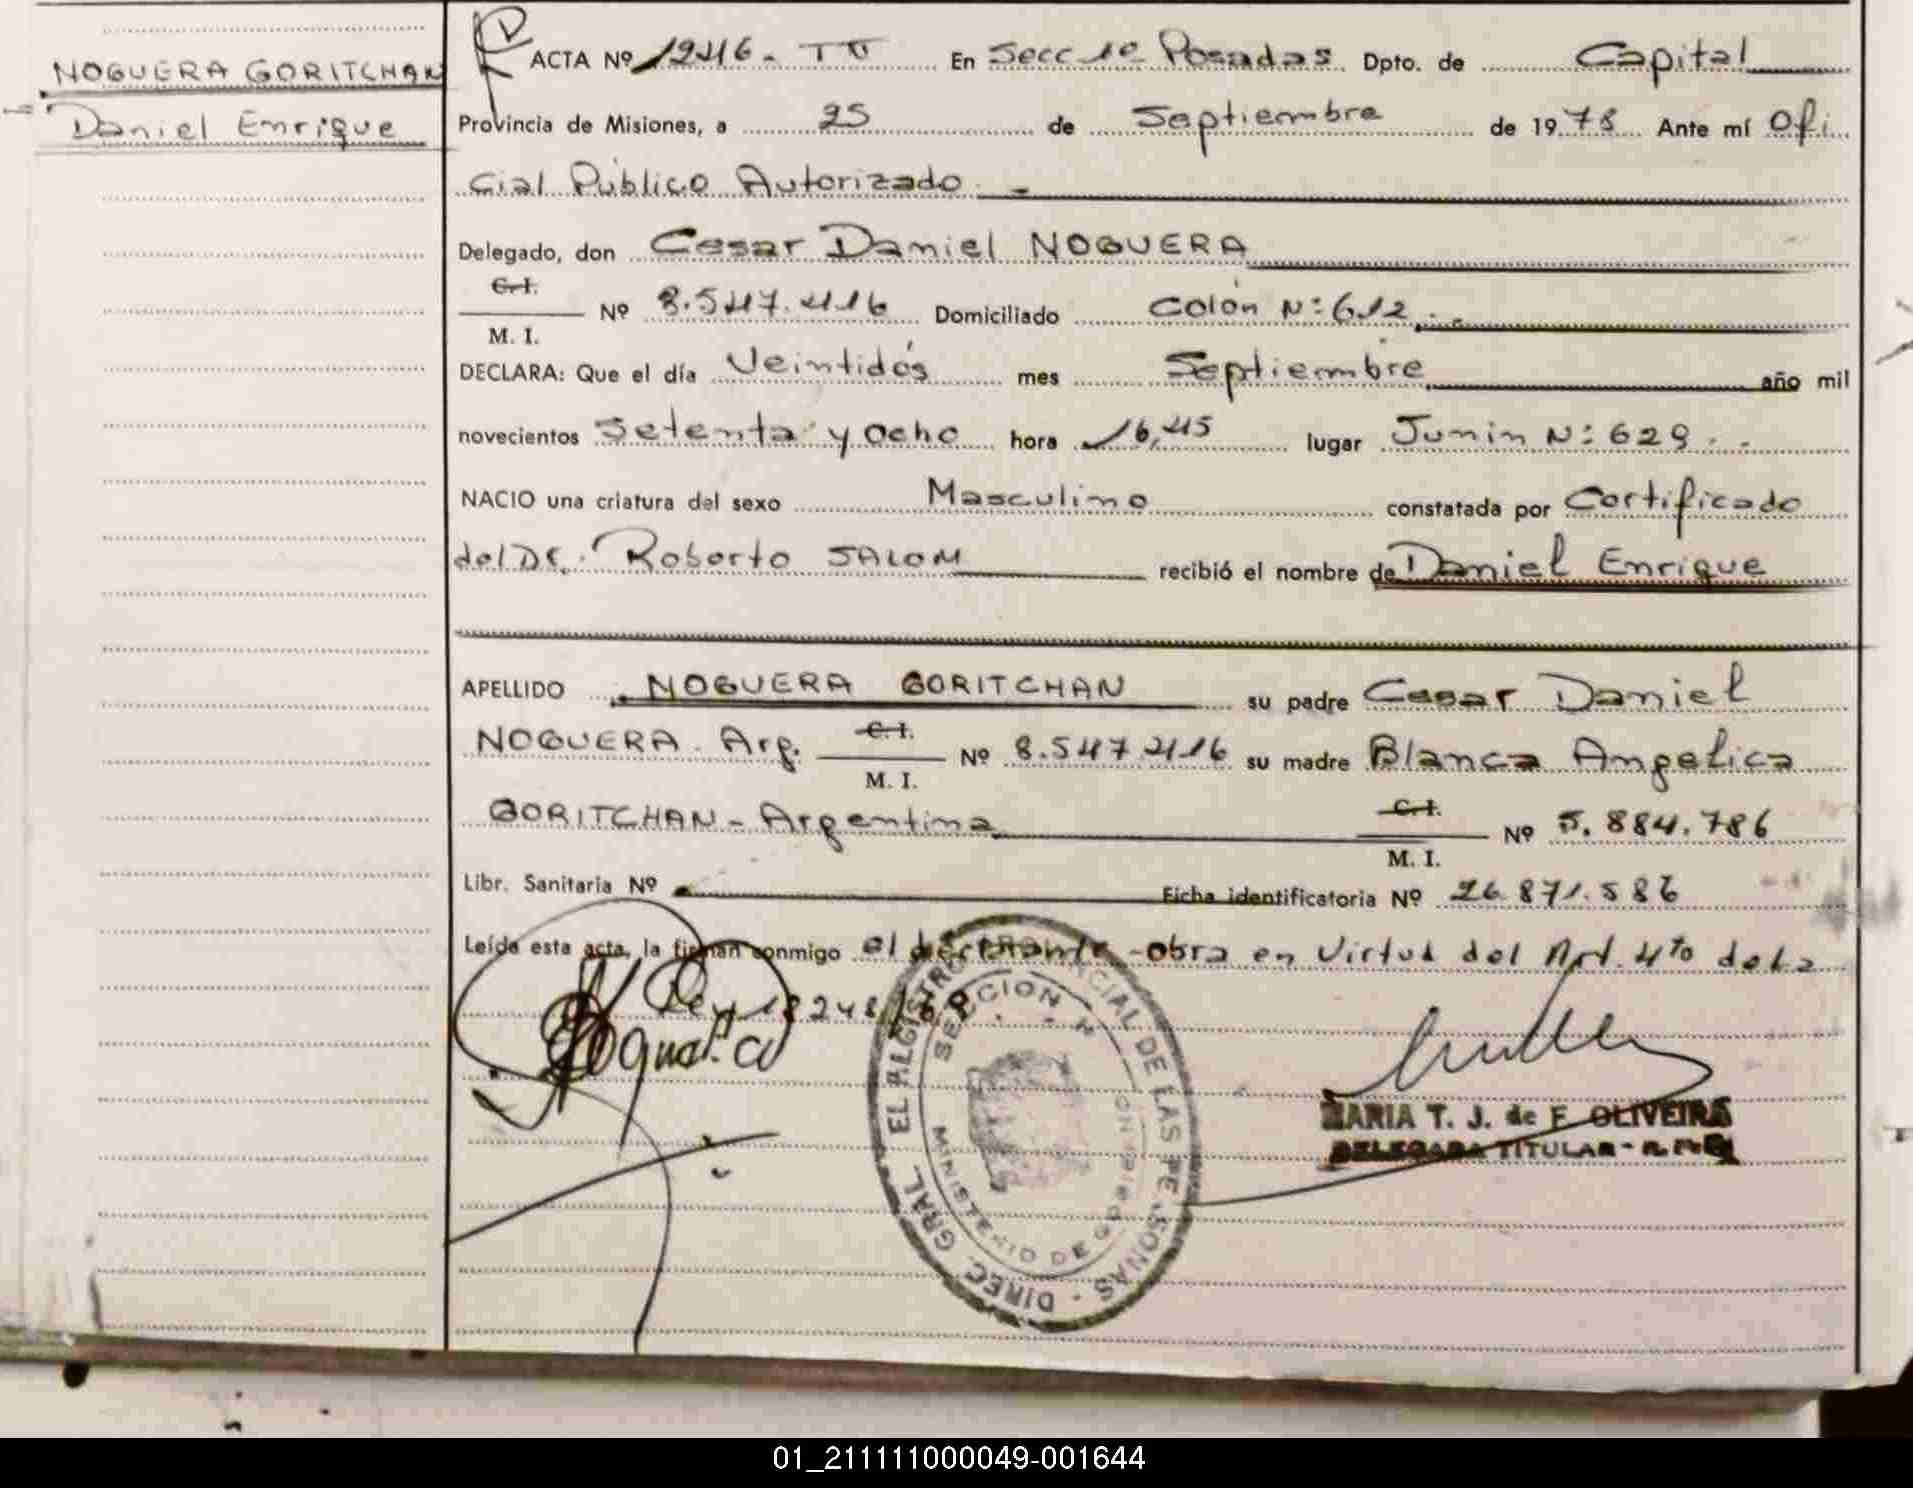 NOGUERA GORITCHAN
Daniel Enrique
ACTA Nº 1246 - TU En Secc 1º Posadas Dpto. de Capital
Provincia de Misiones, a 25 de Septiembre de 1978 Ante mí Ofi
cial Público Autorizado -
Delegado, don Cesar Daniel NOGUERA
C.I.
M. I. Nº 8.547.416 Domiciliado Colón Nº: 612 . -
DECLARA: Que el día Veintidós mes Septiembre año mil
novecientos Setenta y Ocho hora 16,45 lugar Junin Nº: 629 . -
NACIO una criatura del sexo Masculino constatada por Certificado
del Dr. Roberto SALOM recibió el nombre de Daniel Enrique
APELLIDO NOGUERA GORITCHAN su padre Cesar Daniel
NOGUERA - Arg. C.I. M. I. Nº 8.547.416 su madre Blanca Angelica
GORITCHAN - Argentina C.I. M. I. Nº 5.884.786
Libr. Sanitaria Nº Ficha identificatoria Nº 26.871.586
Leída esta acta, la firman conmigo el declarante - obra en Virtud del Art. 4to de La
Ley 18248/69 . -
DIREC. GRAL. EL REGISTRO PROVINCIAL DE LAS PERSONAS
SECCION
MINISTERIO DE GOBIERNO
MARIA T. J. de F. OLIVEIRA
DELEGADA TITULAR - R.P.P.
01_211111000049-001644